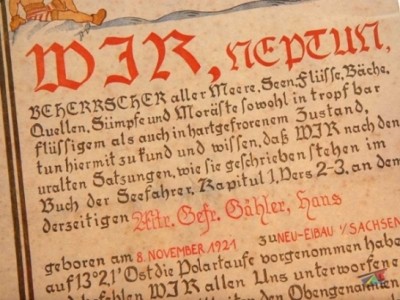 WIR, NEPTUN,
BEHERRSCHER aller Meere, Seen, Flüsse, Bäche,
Quellen, Sümpfe und Moräste sowohl in tropfbar
flüssigem als auch in hartgefrorenem Zustand,
tun hiermit zu kund und wissen, daß WIR nach den
uralten Satzungen, wie sie geschrieben stehen im
Buch der Seefahrer, Kapitul 1, Vers 2-3, an dem
derzeitigen Mtr. Gefr. Gähler, Hans
geboren am 8. NOVEMBER 1921 zu NEU-EIBAU 1/SACHSEN
auf 13°2,1' Ost die Polartaufe vorgenommen habe
befehlen WIR allen Uns unterworfene
den Obengenannten